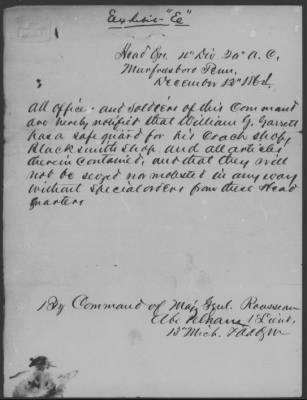 Exhibit "Ee"
Head Qrs. 4th Div. 20" A. C,
Murfresboro Tenn,
December 12th 1864,
All Office. and Soldiers of this Command
are hereby notified that William G. Garrett
has a safe guard for his Coach Shop,
Blacksmith Shop and all articles
therein contained, and that they will
not be seized nor molested in any way
without special orders from these Head
quarters
By Command of Maj. Genl. Rousseau
1 Lieut,
13" Mich.